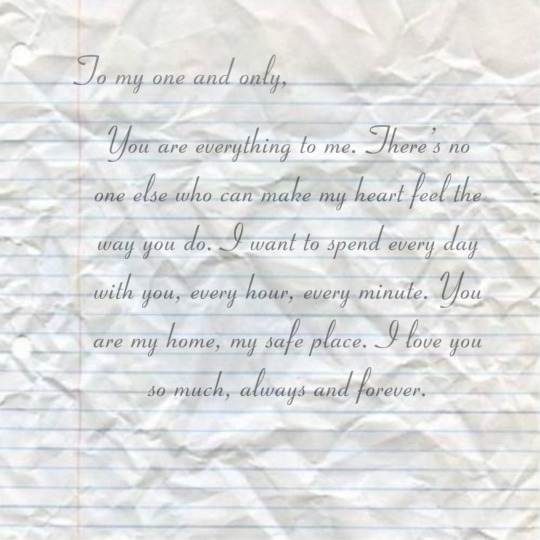 To my one and only,
You are everything to me. There's no
one else who can make my heart feel the
way you do. I want to spend every day
with you, every hour, every minute. You
are my home, my safe place. I love you
so much, always and forever.